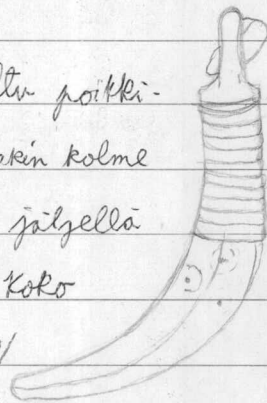 ltu poikki-
akin kolme
jäljellä
Koko